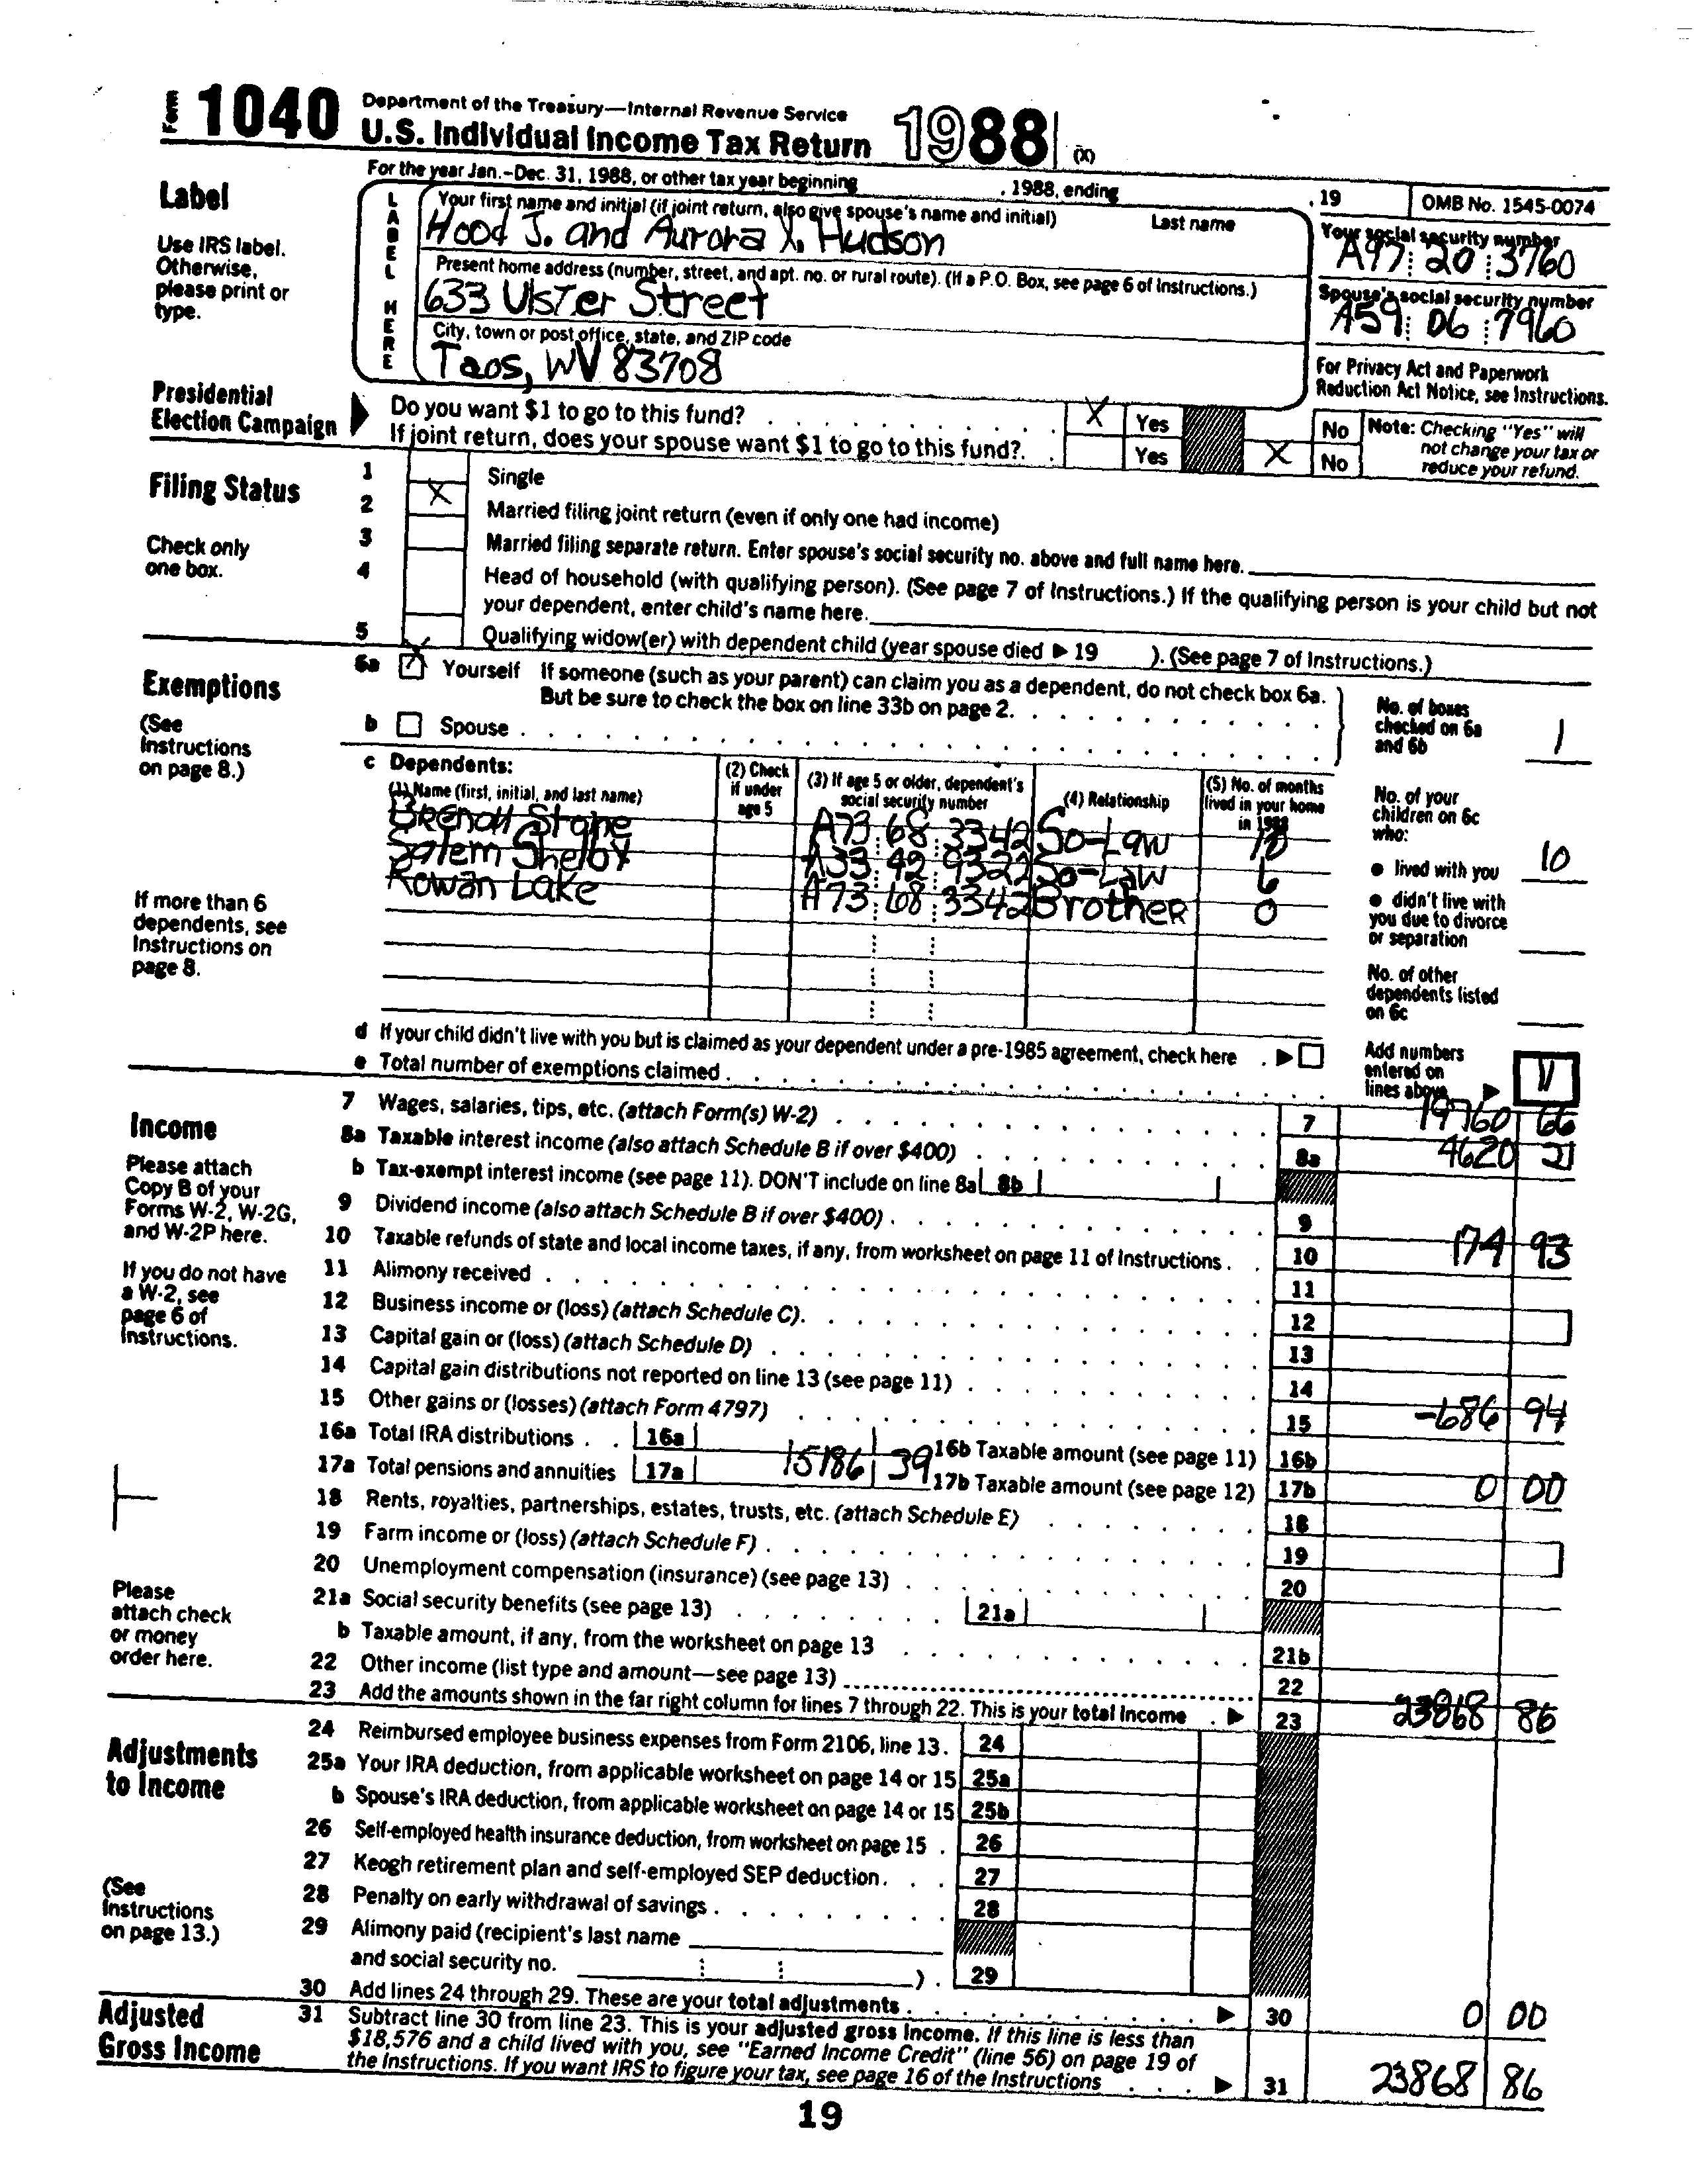 Form 1040 Department of the Treasury—Internal Revenue Service
U.S. Individual Income Tax Return 1988 (X)
For the year Jan.–Dec. 31, 1988, or other tax year beginning , 1988, ending , 19 OMB No. 1545-0074
Label
Use IRS label.
Otherwise,
please print or
type.
LABEL HERE
Your first name and initial (if joint return, also give spouse's name and initial) Last name
Hood J. and Aurora X. Hudson
Your social security number
A97 20 3760
Present home address (number, street, and apt. no. or rural route). (If a P.O. Box, see page 6 of Instructions.)
633 Ulster Street
Spouse's social security number
A59 06 7960
City, town or post office, state, and ZIP code
Taos, WV 83708
For Privacy Act and Paperwork
Reduction Act Notice, see Instructions.
Presidential
Election Campaign
Do you want $1 to go to this fund? X Yes No
If joint return, does your spouse want $1 to go to this fund? Yes X No
Note: Checking "Yes" will
not change your tax or
reduce your refund.
Filing Status
Check only
one box.
1 Single
2 X Married filing joint return (even if only one had income)
3 Married filing separate return. Enter spouse's social security no. above and full name here.
4 Head of household (with qualifying person). (See page 7 of Instructions.) If the qualifying person is your child but not
your dependent, enter child's name here.
5 Qualifying widow(er) with dependent child (year spouse died ▶ 19 ). (See page 7 of Instructions.)
Exemptions
(See
Instructions
on page 8.)
6a X Yourself If someone (such as your parent) can claim you as a dependent, do not check box 6a.
But be sure to check the box on line 33b on page 2.
b Spouse
No. of boxes
checked on 6a
and 6b 1
c Dependents:
(1) Name (first, initial, and last name)
(2) Check
if under
age 5
(3) If age 5 or older, dependent's
social security number
(4) Relationship
(5) No. of months
lived in your home
in 1988
Stone A73 68 3342 So-Law
Salem Shelby A33 42 9322 So-Law 6
Rowan Lake A73 68 3342 Brother 0
No. of your
children on 6c
who:
● lived with you 10
● didn't live with
you due to divorce
or separation
No. of other
dependents listed
on 6c
If more than 6
dependents, see
Instructions on
page 8.
d If your child didn't live with you but is claimed as your dependent under a pre-1985 agreement, check here ▶
e Total number of exemptions claimed
Add numbers
entered on
lines above ▶ 11
Income
Please attach
Copy B of your
Forms W-2, W-2G,
and W-2P here.
If you do not have
a W-2, see
page 6 of
Instructions.
Please
attach check
or money
order here.
7 Wages, salaries, tips, etc. (attach Form(s) W-2) 7 19760 66
8a Taxable interest income (also attach Schedule B if over $400) 8a 4620 21
b Tax-exempt interest income (see page 11). DON'T include on line 8a 8b
9 Dividend income (also attach Schedule B if over $400) 9
10 Taxable refunds of state and local income taxes, if any, from worksheet on page 11 of Instructions 10 174 93
11 Alimony received 11
12 Business income or (loss) (attach Schedule C) 12
13 Capital gain or (loss) (attach Schedule D) 13
14 Capital gain distributions not reported on line 13 (see page 11) 14
15 Other gains or (losses) (attach Form 4797) 15 -686 94
16a Total IRA distributions 16a 16b Taxable amount (see page 11) 16b
17a Total pensions and annuities 17a 15186 39 17b Taxable amount (see page 12) 17b 0 00
18 Rents, royalties, partnerships, estates, trusts, etc. (attach Schedule E) 18
19 Farm income or (loss) (attach Schedule F) 19
20 Unemployment compensation (insurance) (see page 13) 20
21a Social security benefits (see page 13) 21a
b Taxable amount, if any, from the worksheet on page 13 21b
22 Other income (list type and amount—see page 13) 22
23 Add the amounts shown in the far right column for lines 7 through 22. This is your total income ▶ 23 23868 86
Adjustments
to Income
(See
Instructions
on page 13.)
24 Reimbursed employee business expenses from Form 2106, line 13. 24
25a Your IRA deduction, from applicable worksheet on page 14 or 15 25a
b Spouse's IRA deduction, from applicable worksheet on page 14 or 15 25b
26 Self-employed health insurance deduction, from worksheet on page 15 26
27 Keogh retirement plan and self-employed SEP deduction 27
28 Penalty on early withdrawal of savings 28
29 Alimony paid (recipient's last name
and social security no. ) 29
30 Add lines 24 through 29. These are your total adjustments ▶ 30 0 00
Adjusted
Gross Income
31 Subtract line 30 from line 23. This is your adjusted gross income. If this line is less than
$18,576 and a child lived with you, see "Earned Income Credit" (line 56) on page 19 of
the Instructions. If you want IRS to figure your tax, see page 16 of the Instructions ▶ 31 23868 86
19